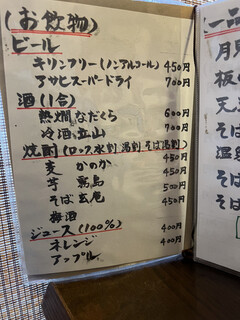 (お飲物)
ビール
キリンフリー(ノンアルコール) 450円
アサヒスーパードライ 700円
酒(1合)
熱燗 なだくら 600円
冷酒 立山 700円
焼酎(ロック 水割 湯割 そば湯割)
麦 かのか 450円
芋 霧島 450円
そば 玄庵 500円
梅酒 450円
ジュース(100%)
オレンジ 400円
アップル 400円
一品
月見
板
天ぷ
そ
温
そば
そ